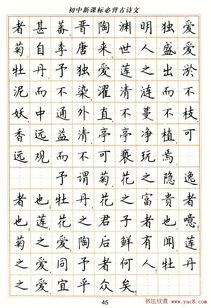 初中新课标必背古诗文
者甚蕃晋陶渊明独爱
菊自李唐来世人盛爱
牡丹予独爱莲之出淤
泥而不染濯清涟而不
妖中通外直不蔓不枝
香远益清亭亭净植可
远观而不可亵玩焉
予谓菊花之隐逸
者也牡丹花之富贵者
也莲花之君子者也噫
菊之爱陶后鲜有闻莲
之爱同予者何人牡丹
之爱宜乎众矣
45
书法欣赏 www.yac8.com